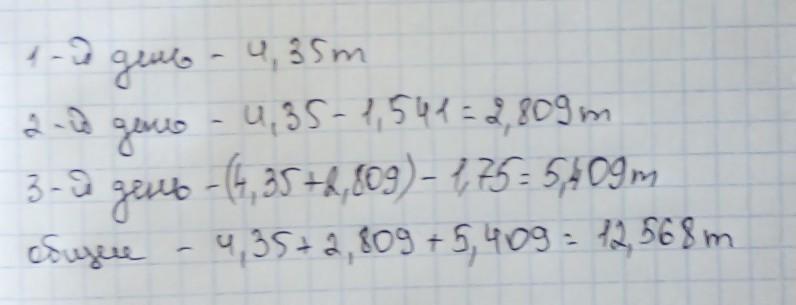 1-й день - 4,35т
2-й день - 4,35-1,541=2,809т
3-й день -(4,35+2,809)-1,75=5,409т
общее - 4,35+2,809+5,409=12,568т